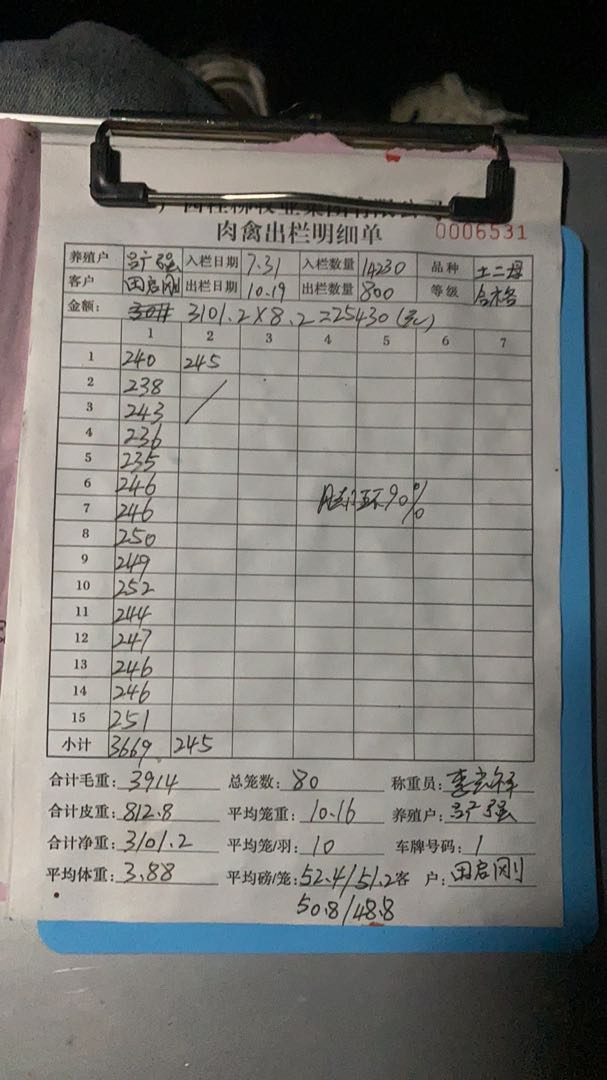 肉禽出栏明细单 0006531
养殖户 入栏日期 7.31 入栏数量 14230 品种 土二母
客户 田启刚 出栏日期 10.19 出栏数量 800 等级 合格
金额: 3101.2×8.2=25430(元)
1 2 3 4 5 6 7
1 240 245
2 238
3 243
4 236
5 235
6 246
7 246 90%
8 250
9 249
10 252
11 244
12 247
13 246
14 246
15 251
小计 3669 245
合计毛重: 3914 总笼数: 80 称重员:
合计皮重: 812.8 平均笼重: 10.16 养殖户:
合计净重: 3101.2 平均笼/羽: 10 车牌号码: 1
平均体重: 3.88 平均磅/笼: 52.4/51.2 客 户: 田启刚
50.8/48.8